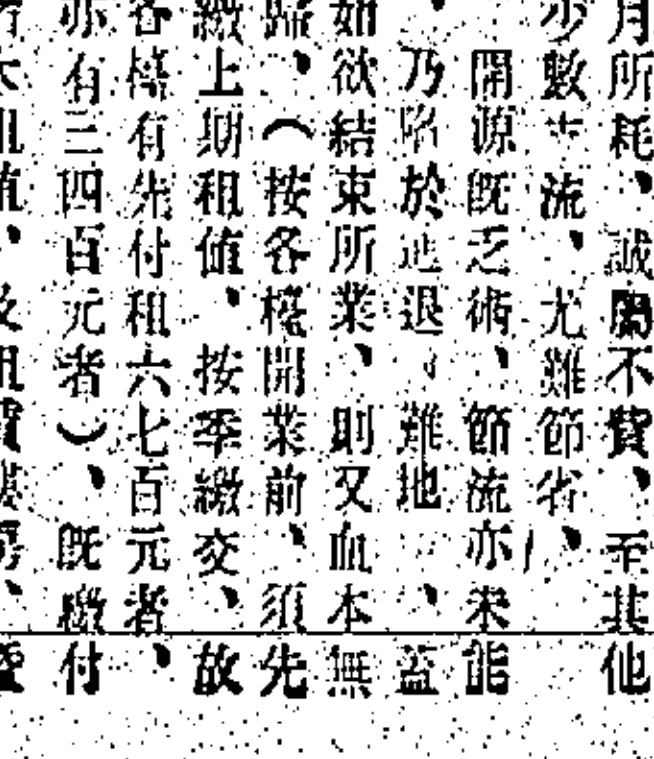 月所耗、誠屬不貲、至其他
少數支流、尤難節省、
開源既乏術、節流亦未能
、乃陷於進退難地、蓋
如欲結束所業、則又血本無
歸、(按各檯開業前、須先
繳上期租值、按季繳交、故
各檯有先付租六七百元者、
亦有三四百元者)、既繳付